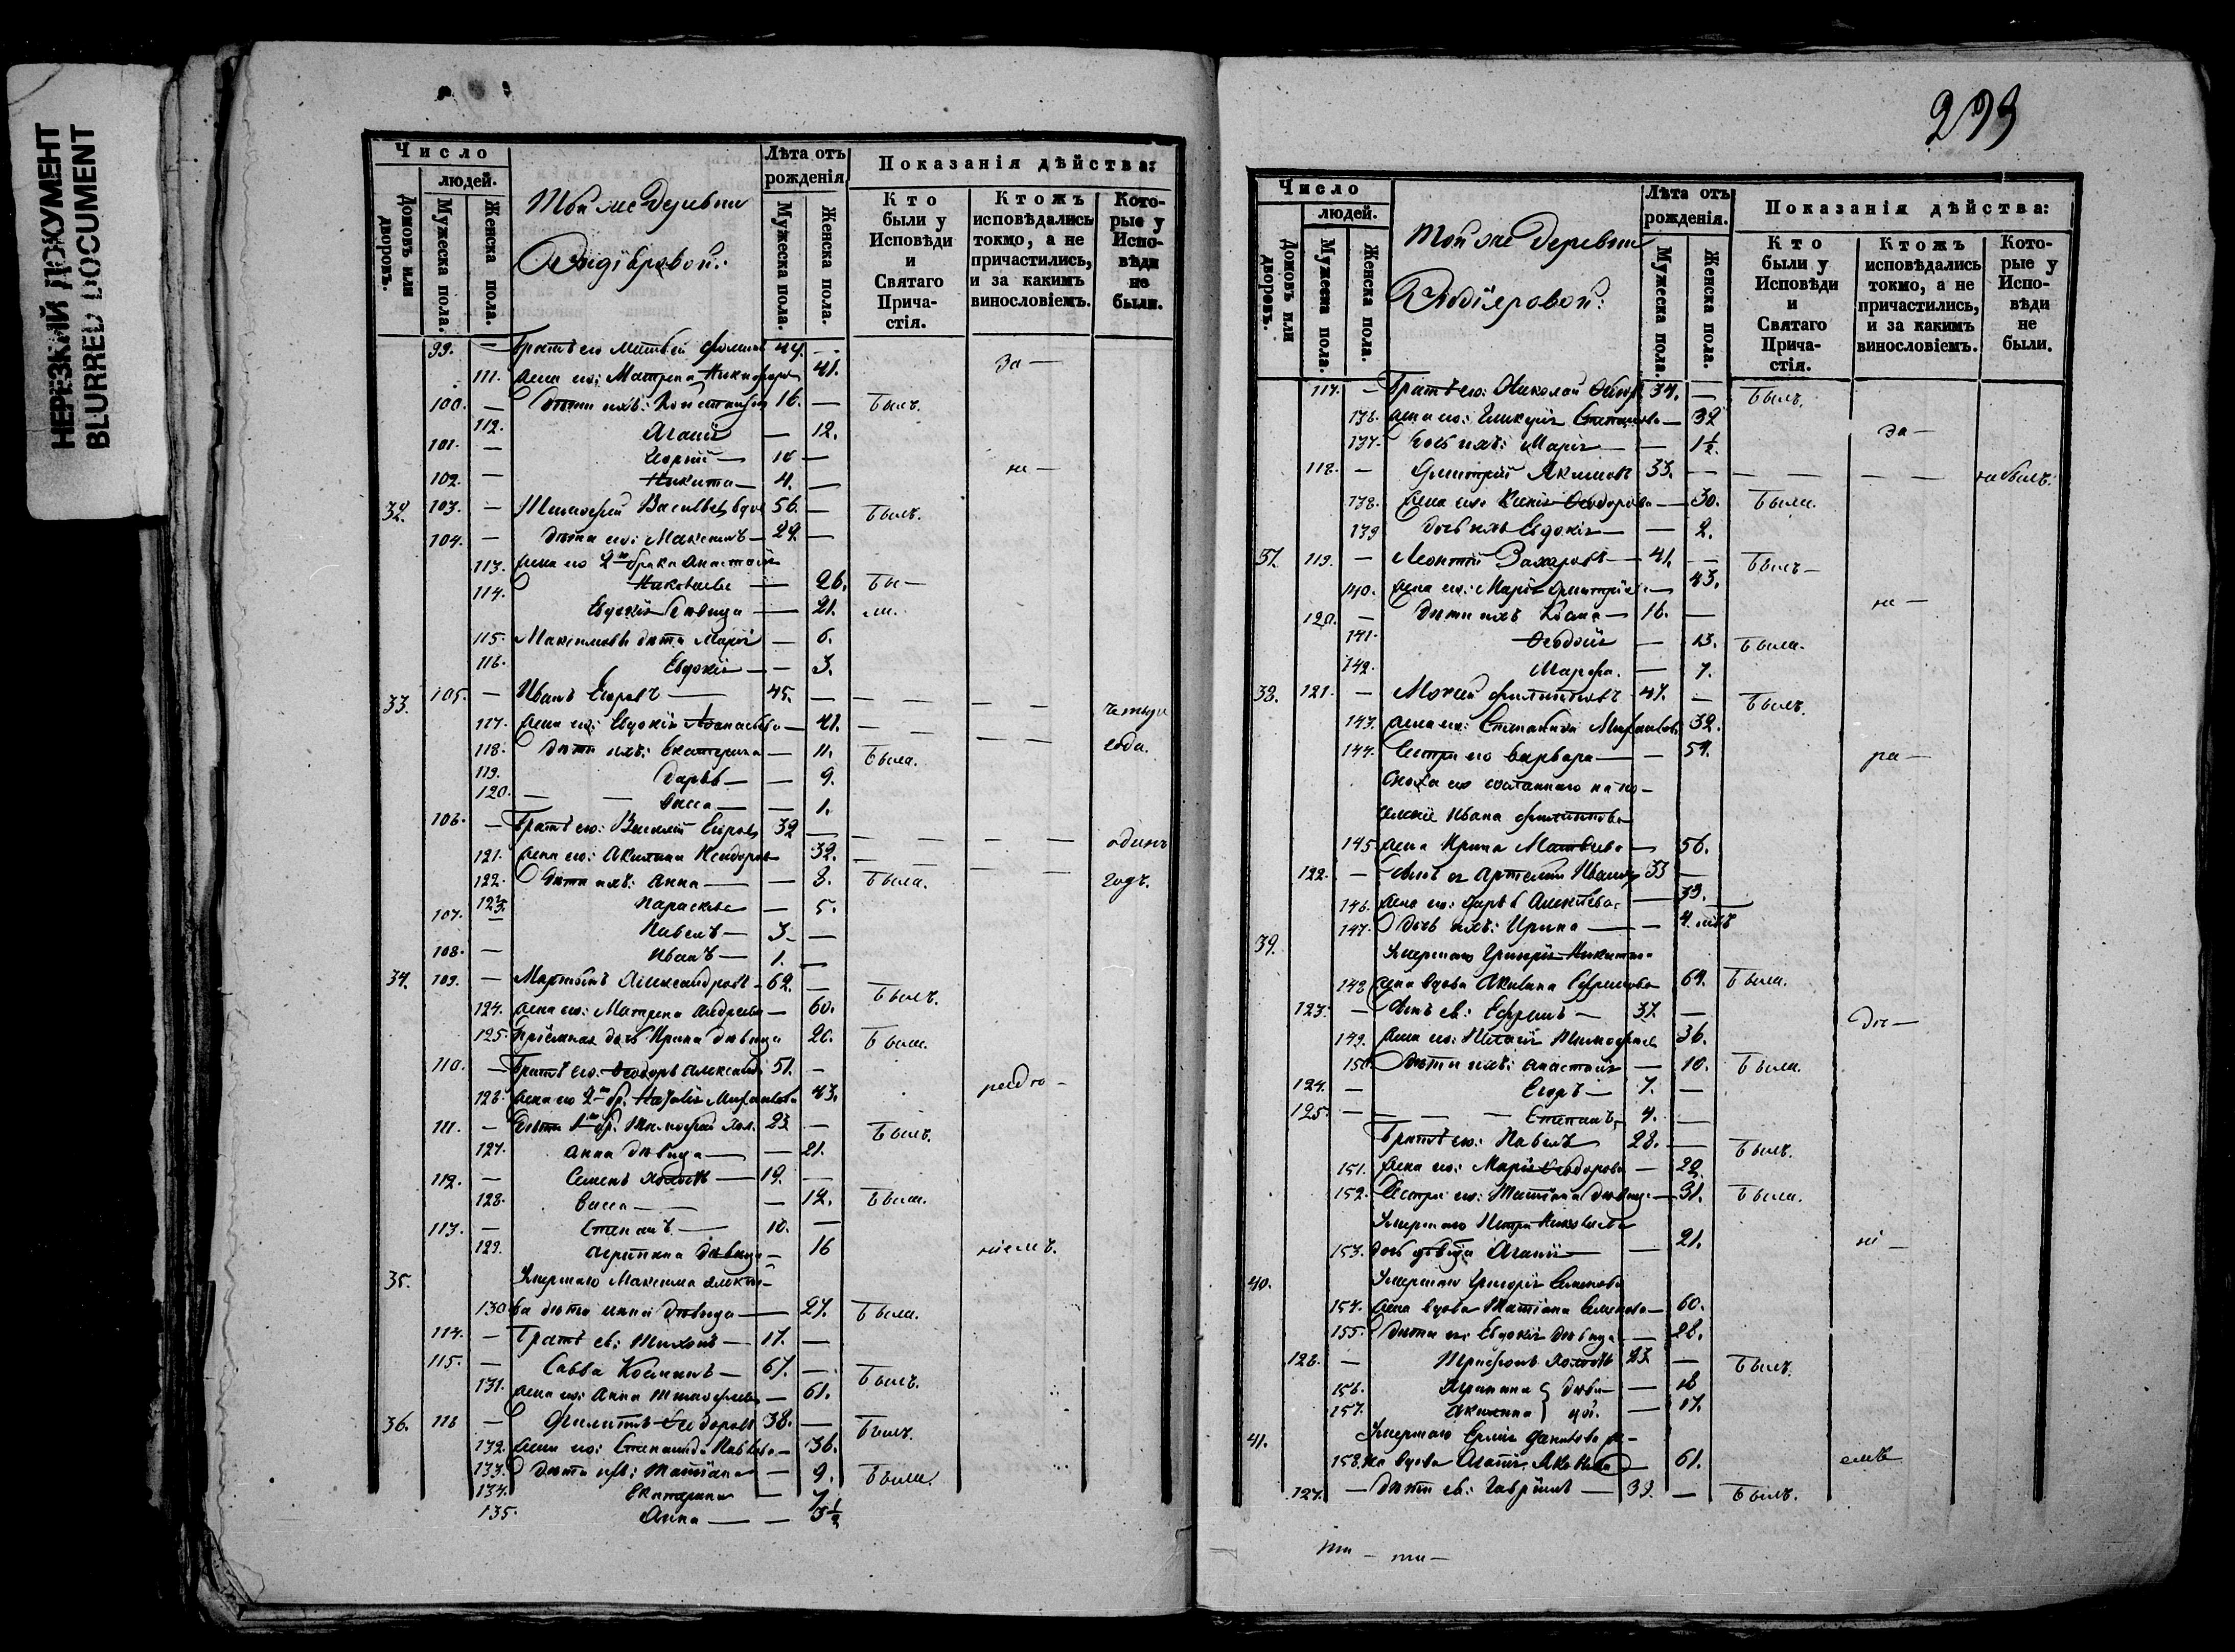 НЕРЕЗКИЙ ДОКУМЕНТ
BLURRED DOCUMENT
Число
людей.
Домовъ или дворовъ.
Мужеска пола.
Женска пола.
Той же деревни
Лѣта отъ рожденія
Мужеска пола.
Женска пола.
Показанія дѣйства:
Кто были у Исповѣди и Святаго Причастія.
Ктожъ исповѣдались токмо, а не причастились, и за какимъ винословіемъ.
Которые у Исповѣди не были.
99. — Братъ его Матвей 44. —
111. жена его: Матрена 41. за —
100. — дѣти ихъ: 16. — былъ.
112. Агаѳія — 12.
101. — Георгій — 10 —
102. — Никита — 4. — не —
32. 103. — Тимоѳей Васильевъ вдов 56. — былъ.
104. — дѣти его: Максимъ — 29. —
113. жена его 2 брака Анастасія
— 26. бы —
114. Евдокія дѣвица — 21. ли.
115. Максимовы дѣти Марія — 6.
116. Евдокія — 3.
33. 105. — Иванъ Егоровъ — 45. — — — — — четыре
117. жена его: Евдокія Аѳанасьева — 41. — — — — года.
118. дѣти ихъ: Екатерина — 11. была.
119. Дарья — — 9.
120. — — Васса — — 1.
106. — Братъ его: Василій Егоровъ 32 — — — — — одинъ
121. жена его: Акилина 32. — — — годъ.
122. дѣти ихъ: Анна — — 8. была.
123. Параскева — 5.
107. — Павелъ — 3. —
108. — Иванъ — 1. —
34. 109. — Александровъ — 62. — былъ.
124. жена его: Матрена Андреева — 60.
125. Пріемная дочь Ирина дѣвица 20. была.
110. — Братъ его: Ѳеодоръ Александр 51. —
126. жена его 2 бр. Наталія Михайлова 43.
111. — дѣти 1 бр. Тимоѳей хол. 23 — былъ.
127. Анна дѣвица — — 21.
112. — Семенъ холостъ — 19. —
128. Васса — — 12. была.
113. — Степанъ — 10. —
129. Агрипина дѣвица — 16 ніемъ.
35. Умершаго Максима Алексѣе-
130. ва дѣти Анна дѣвица — 27. была.
114. — Братъ ея: Тихонъ — 17. —
115. — Савва Козминъ — 67. — былъ.
131. жена его: Анна Тимоѳеева — 61.
36. 116 — Филиппъ Ѳеодоровъ 38. — былъ.
132. жена его: Степанида Павлова — 36.
133. дѣти ихъ: Татіана — 9. были.
134. Екатерина — 7
135. Анна — — 3½
299
Число
людей.
Домовъ или дворовъ.
Мужеска пола.
Женска пола.
Той же деревни
Лѣта отъ рожденія.
Мужеска пола.
Женска пола.
Показанія дѣйства:
Кто были у Исповѣди и Святаго Причастія.
Ктожъ исповѣдались токмо, а не причастились, и за какимъ винословіемъ.
Которые у Исповѣди не были.
117. — Братъ его: Николай 34. — былъ.
136. жена его: Гликерія Степанова — 32
137. дочь ихъ: Марія — — 1½. за —
118. — Димитрій Якимовъ 33. — — — — — не былъ.
138. жена его Ксенія Ѳеодорова — 30. была.
139 дочь ихъ Евдокія — — 2.
37. 119. — Леонтій Захаровъ — 41. — былъ —
140. жена его: Марія Димитріева — 43.
120. — дѣти ихъ Козма — 16. — не —
141. Ѳеодосія — 13. была.
142. Марѳа. — 7.
38. 121. — Мокей Филипповъ 47. — былъ.
143. жена его: Степанида Михайлова 32.
144. сестра его Варвара — — 51. ра —
сноха его сосланнаго на по-
селеніе Ивана Филиппова
145 жена Ирина Матвеева — 56.
122. — сынъ ея Артемій Ивановъ 33 —
146. жена его: Дарья Алексѣева — 33.
147. дочь ихъ: Ирина — — 4.
39. Умершаго Григорія Никитина
148 жена вдова Акилина Ефимова 64. была.
123. — сынъ ея: Ефремъ — 37. — ло —
149. жена его: Пелагія Тимоѳеева 36.
150 дѣти ихъ: Анастасія — 10. была.
124. — Егоръ — 7. —
125. — — — Степанъ, 4. —
Братъ его: Павелъ 28. — былъ.
151. жена его: Марія Ѳеодорова — 22.
152. Сестра его: Татіана дѣвица — 31. была.
Умершаго Петра
153. дочь дѣвица Агаѳія — 21. ні —
40. Умершаго Григорія Семенова
154. жена вдова Татіана Семенова — 60.
155. дѣти ея: Евдокія дѣвица — 28.
126. — Трифонъ холостъ 23 — былъ.
156. Агрипина } дѣви- — 18
157. Акилина } цы. — 17.
41. Умершаго Данилова же-
158. на вдова Агаѳія Яковлева — 61. емъ
127. — дѣти ея: Гавріилъ — 39. — былъ.